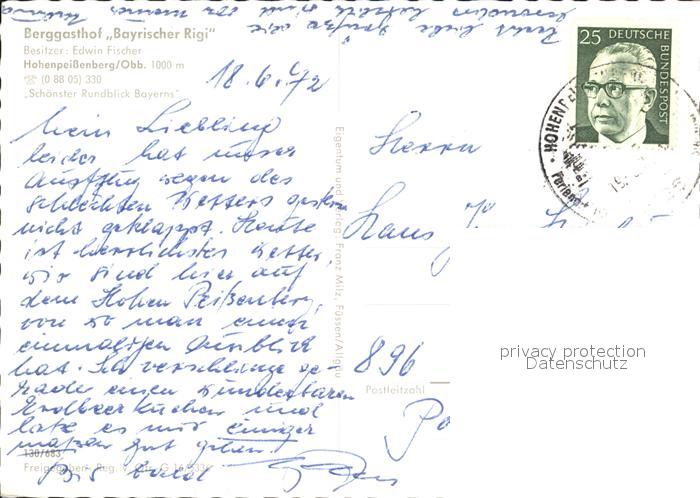 Recht liebe Grüße
Berggasthof „Bayrischer Rigi"
Besitzer: Edwin Fischer
Hohenpeißenberg/Obb. 1000 m
☎ (0 88 05) 330
„Schönster Rundblick Bayerns"
18.6.72
Mein Liebling
leider hat unser
Ausflug wegen des
schlechten Wetters gestern
nicht geklappt. Heute
ist herrlichstes Wetter,
wir sind hier auf
dem Hohen Peißenberg,
von wo man einen
einmaligen Ausblick
hat. Ich verschlinge ge-
rade einen wunderbaren
Erdbeerkuchen und
lasse es mir einiger
maßen gut gehen.
Bis bald
130/683
Freigegeben: Reg. v.
Eigentum und Verlag: Franz Milz, Füssen/Allgäu
25 DEUTSCHE
BUNDESPOST
HOHENPEI
Herrn
Hans
896
Postleitzahl
privacy protection
Datenschutz